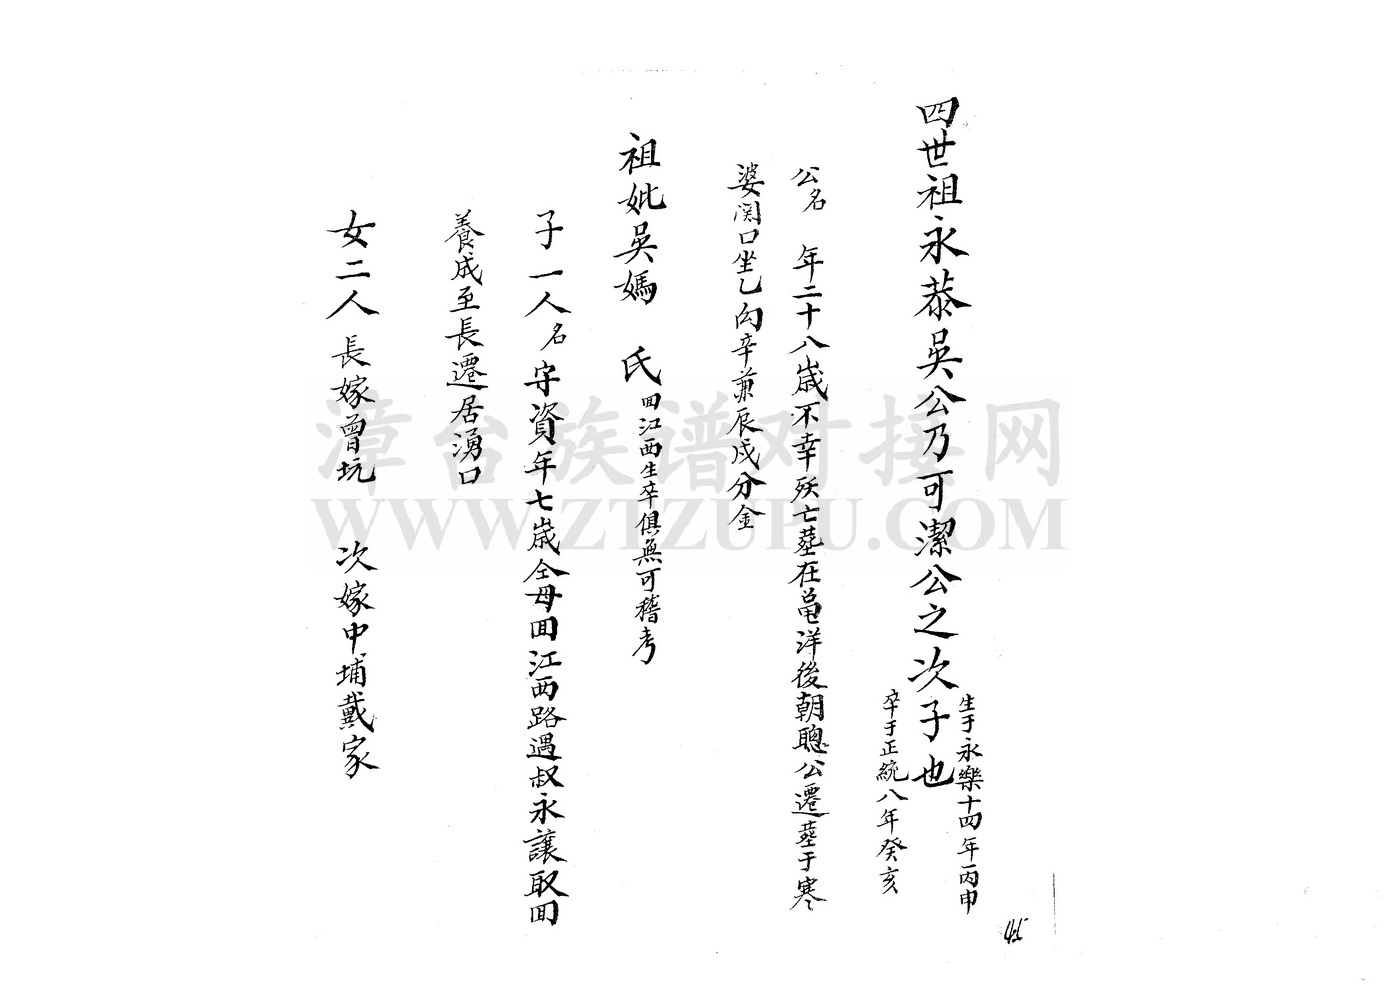 四世祖永恭吳公乃可潔公之次子也
生于永樂十四年丙申
卒于正統八年癸亥
公名 年二十八歲不幸殀亡塟在黽洋後朝聰公遷塟于寒
婆関口坐乙向辛兼辰戍分金
祖妣吳媽 氏回江西生卒俱無可稽考
子一人名守資年七歲仝母回江西路遇叔永讓取回
養成至長遷居湧口
女二人長嫁曾坑 次嫁中埔戴家
漳台族谱对接网
WWW.ZTZUPU.COM